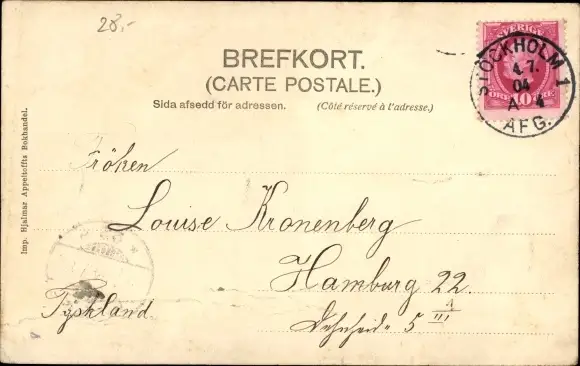 28.-
SVERIGE
STOCKHOLM 1
4.7.
04
A 4
AFG.
ÖRE 10 ÖRE
BREFKORT.
(CARTE POSTALE.)
Sida afsedd för adressen. (Côté réservé à l'adresse.)
Imp. Hjalmar Appeltoffts Bokhandel.
Fröken
Louise Kronenberg
Hamburg 22
Tyskland.
5 III